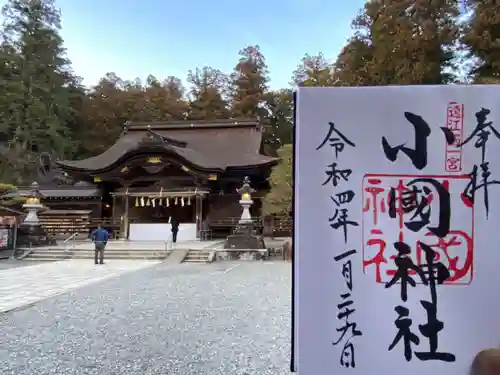 奉拝
遠江國一宮
小國神社
令和四年一月二十九日